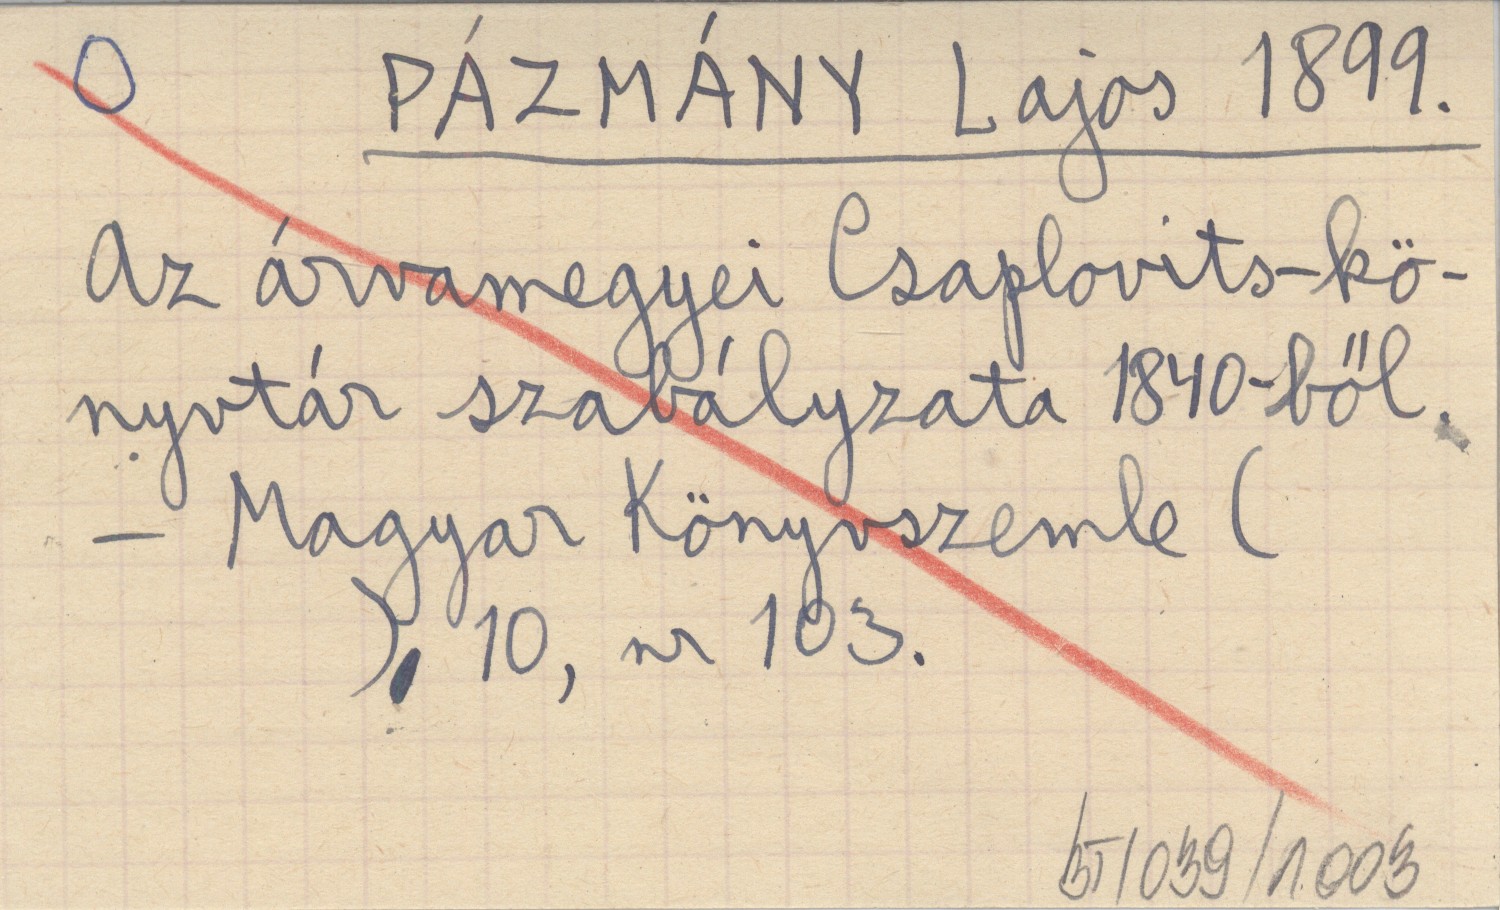 O PÁZMÁNY Lajos 1899.
Az árvamegyei Csaplovits-kö-
nyvtár szabályzata 1840-ből.
– Magyar Könyvszemle (
). 10, nr 103.
/039/1.003